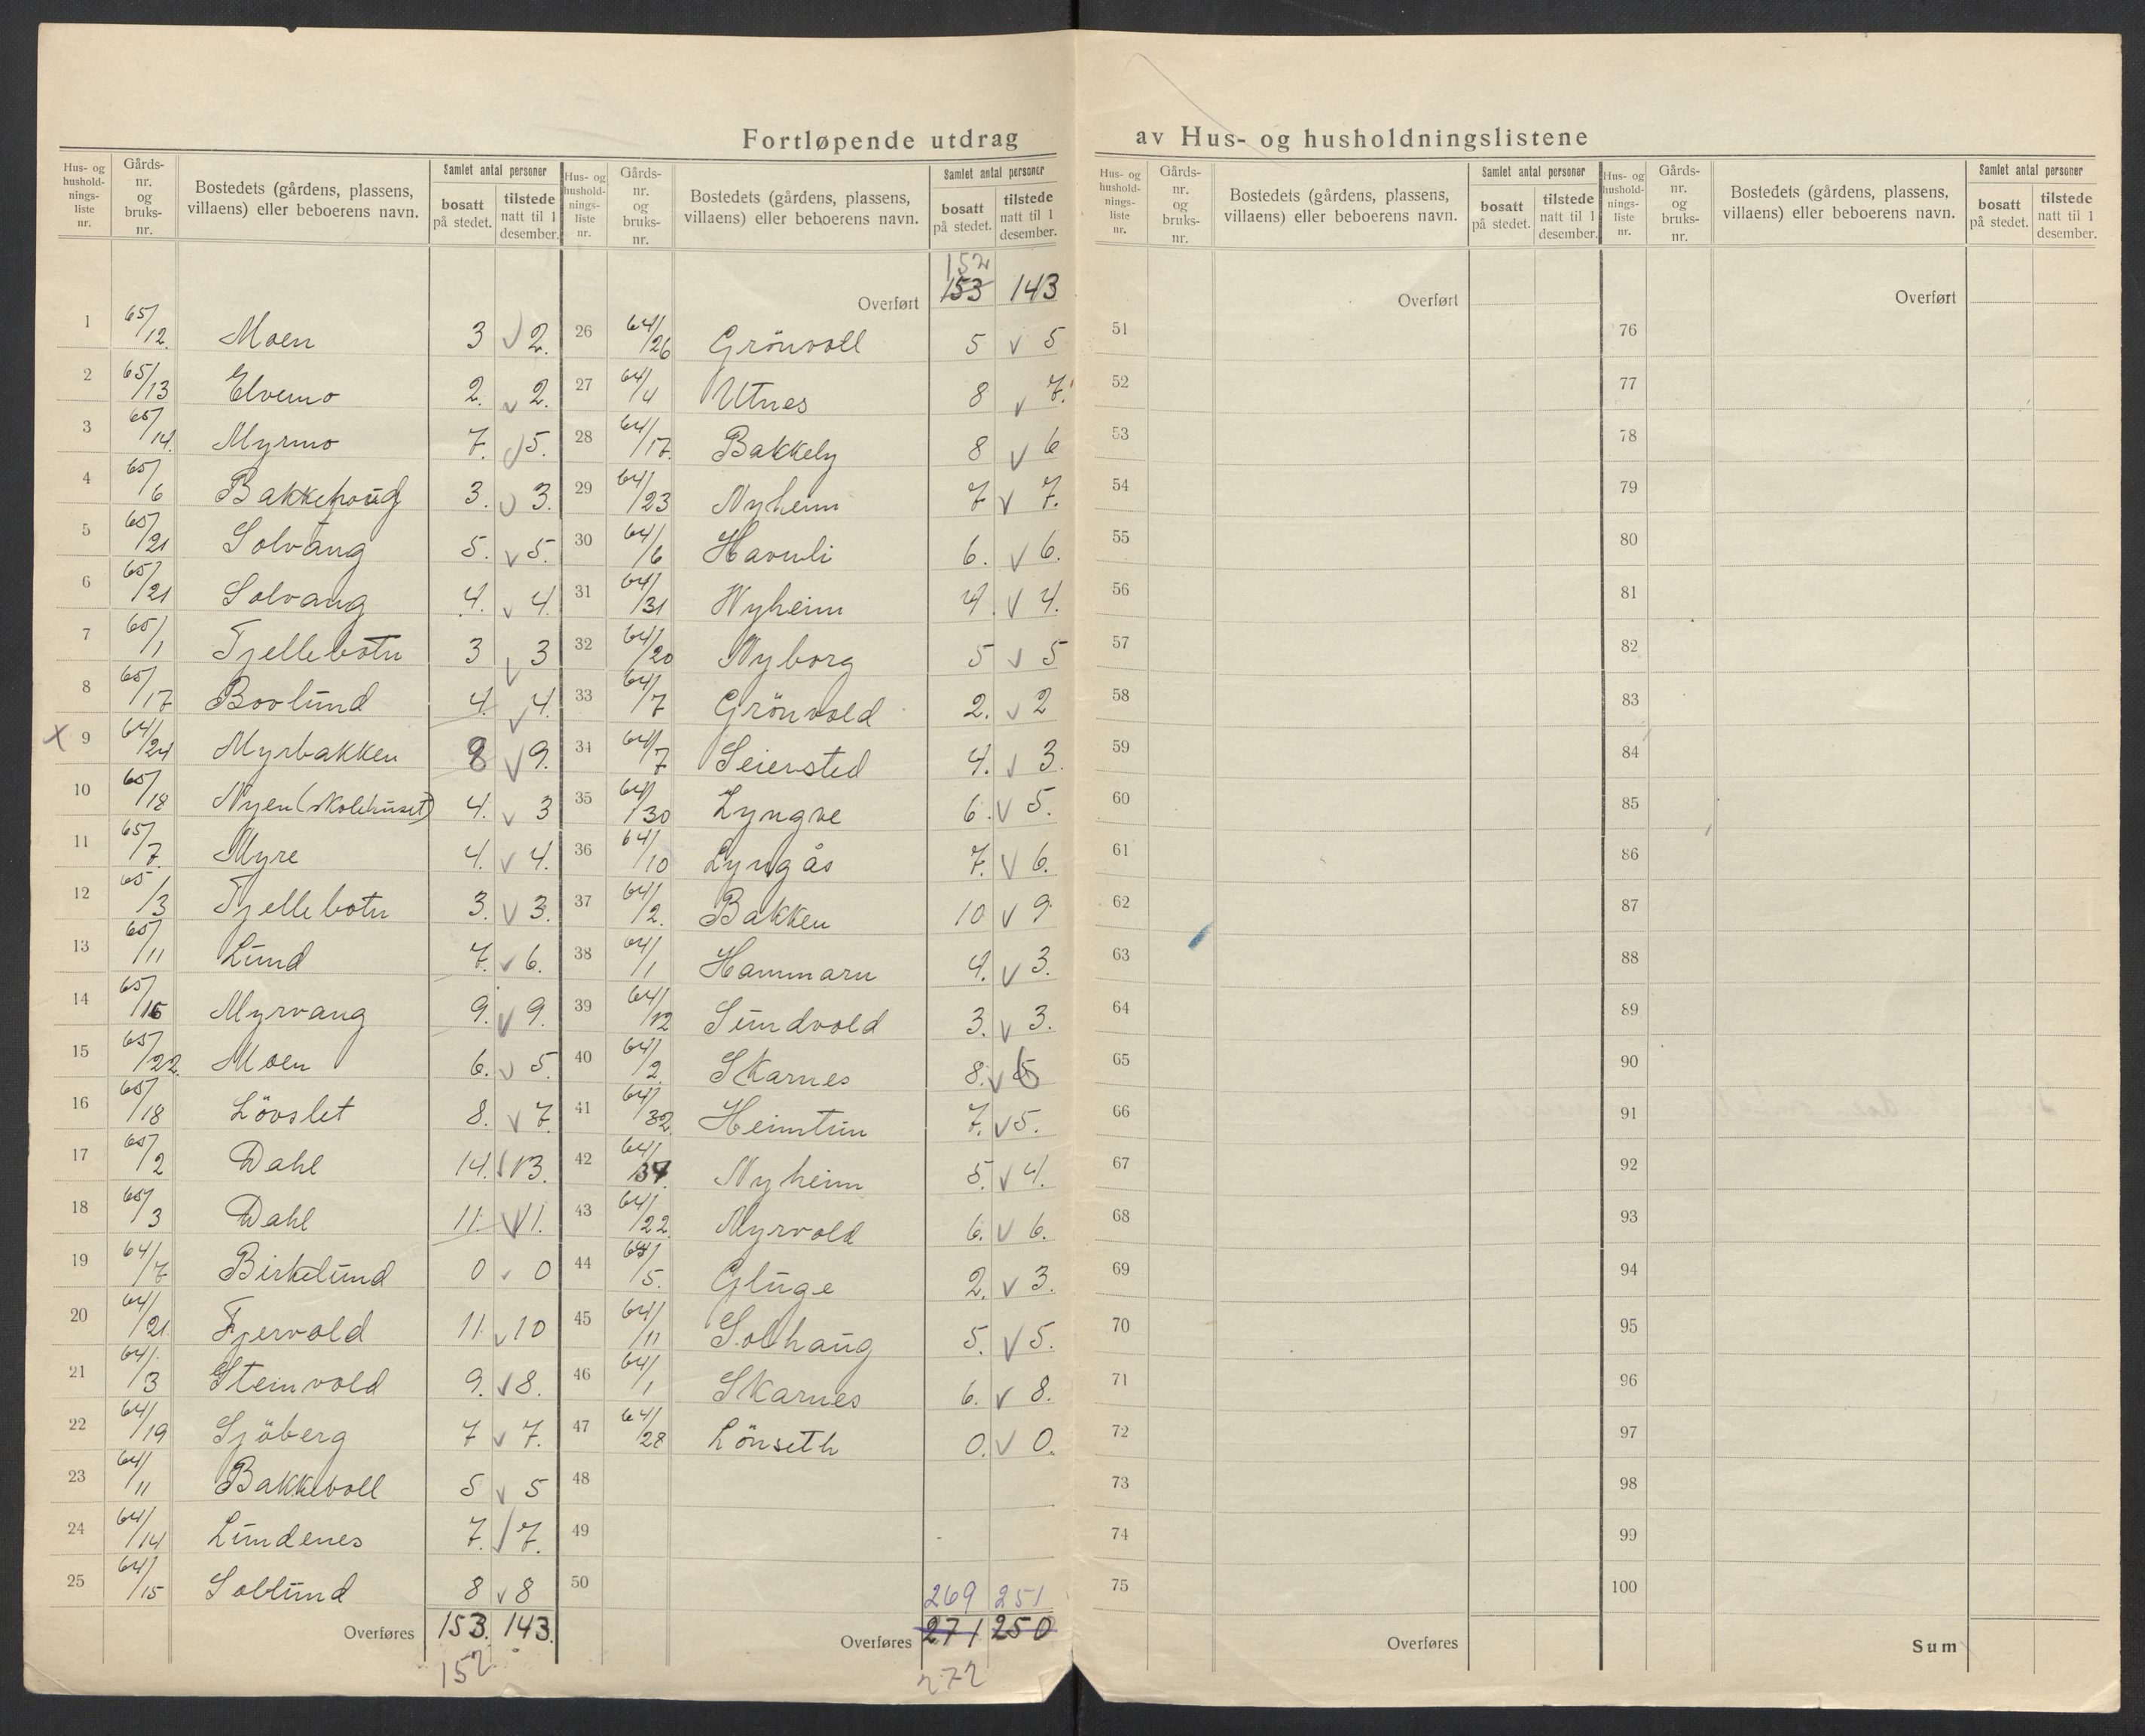 Fortløpende utdrag av Hus- og husholdningslistene
Hus- og hushold-nings-liste nr. | Gårds-nr. og bruks-nr. | Bostedets (gårdens, plassens, villaens) eller beboerens navn. | Samlet antal personer | bosatt på stedet. | tilstede natt til 1 desember.
1 65/12. Moen 3 v 2.
2 65/13 Elvemo 2. v 2.
3 65/14. Myrmo 7. v 5.
4 65/6 Bakkehaug 3. v 3.
5 65/21 Solvang 5. v 5.
6 65/21 Solvang 4. v 4.
7 65/1 Fjellebotn 3 v 3
8 65/17 Boolund 4. v 4.
x 9 64/24 Myrbakken 8 v 9.
10 65/18 Nyen (skolehuset) 4. v 3
11 65/7. Myre 4. v 4.
12 65/3 Fjellebotn 3. v 3.
13 65/11 Lund 7. v 6.
14 65/16 Myrvang 9. v 9.
15 65/22. Moen 6. v 5.
16 65/18 Lövslet 8. v 7.
17 65/2 Dahl 14. v 13.
18 65/3 Dahl 11. v 11.
19 64/7 Birkelund 0 v 0
20 64/21 Fjervold 11 v 10
21 64/3 Steinvold 9. v 8.
22 64/19 Sjöberg 7 v 7.
23 64/11 Bakkevoll 5 v 5
24 64/14 Lundenes 7. v 7.
25 64/15 Soblund 8 v 8
Overføres 153. 143.
152
Hus- og hushold-nings-liste nr. | Gårds-nr. og bruks-nr. | Bostedets (gårdens, plassens, villaens) eller beboerens navn. | Samlet antal personer | bosatt på stedet. | tilstede natt til 1 desember.
152
Overført 153 143
26 64/26 Grönvoll 5 v 5
27 64/4 Utnes 8 v 7.
28 64/17. Bakkely 8 v 6
29 64/23 Nyheim 7 v 7.
30 64/6 Havnli 6. v 6.
31 64/31 Nyheim 4. v 4.
32 64/20 Nyborg 5 v 5
33 64/7 Grönvold 2. v 2
34 64/7 Seiersted 4. v 3.
35 64/30 Lyngve 6. v 5.
36 64/10 Lyngås 7. v 6.
37 64/2. Bakken 10 v 9
38 64/1 Hammarn 4. v 3.
39 64/12 Sundvold 3. v 3.
40 64/2. Skarnes 8. v 6
41 64/32 Heimtun 7. v 5.
42 64/34. Nyheim 5. v 4.
43 64/22. Myrvold 6. v 6.
44 64/5. Gluge 2. v 3.
45 64/11 Solhaug 5. v 5.
46 64/1 Skarnes 6. v 8.
47 64/28 Lönseth 0. v 0.
48
49
50
269 251
Overføres 271 250
272
Hus- og hushold-nings-liste nr. | Gårds-nr. og bruks-nr. | Bostedets (gårdens, plassens, villaens) eller beboerens navn. | Samlet antal personer | bosatt på stedet. | tilstede natt til 1 desember.
Overført
51
52
53
54
55
56
57
58
59
60
61
62
63
64
65
66
67
68
69
70
71
72
73
74
75
Overføres
Hus- og hushold-nings-liste nr. | Gårds-nr. og bruks-nr. | Bostedets (gårdens, plassens, villaens) eller beboerens navn. | Samlet antal personer | bosatt på stedet. | tilstede natt til 1 desember.
Overført
76
77
78
79
80
81
82
83
84
85
86
87
88
89
90
91
92
93
94
95
96
97
98
99
100
Sum